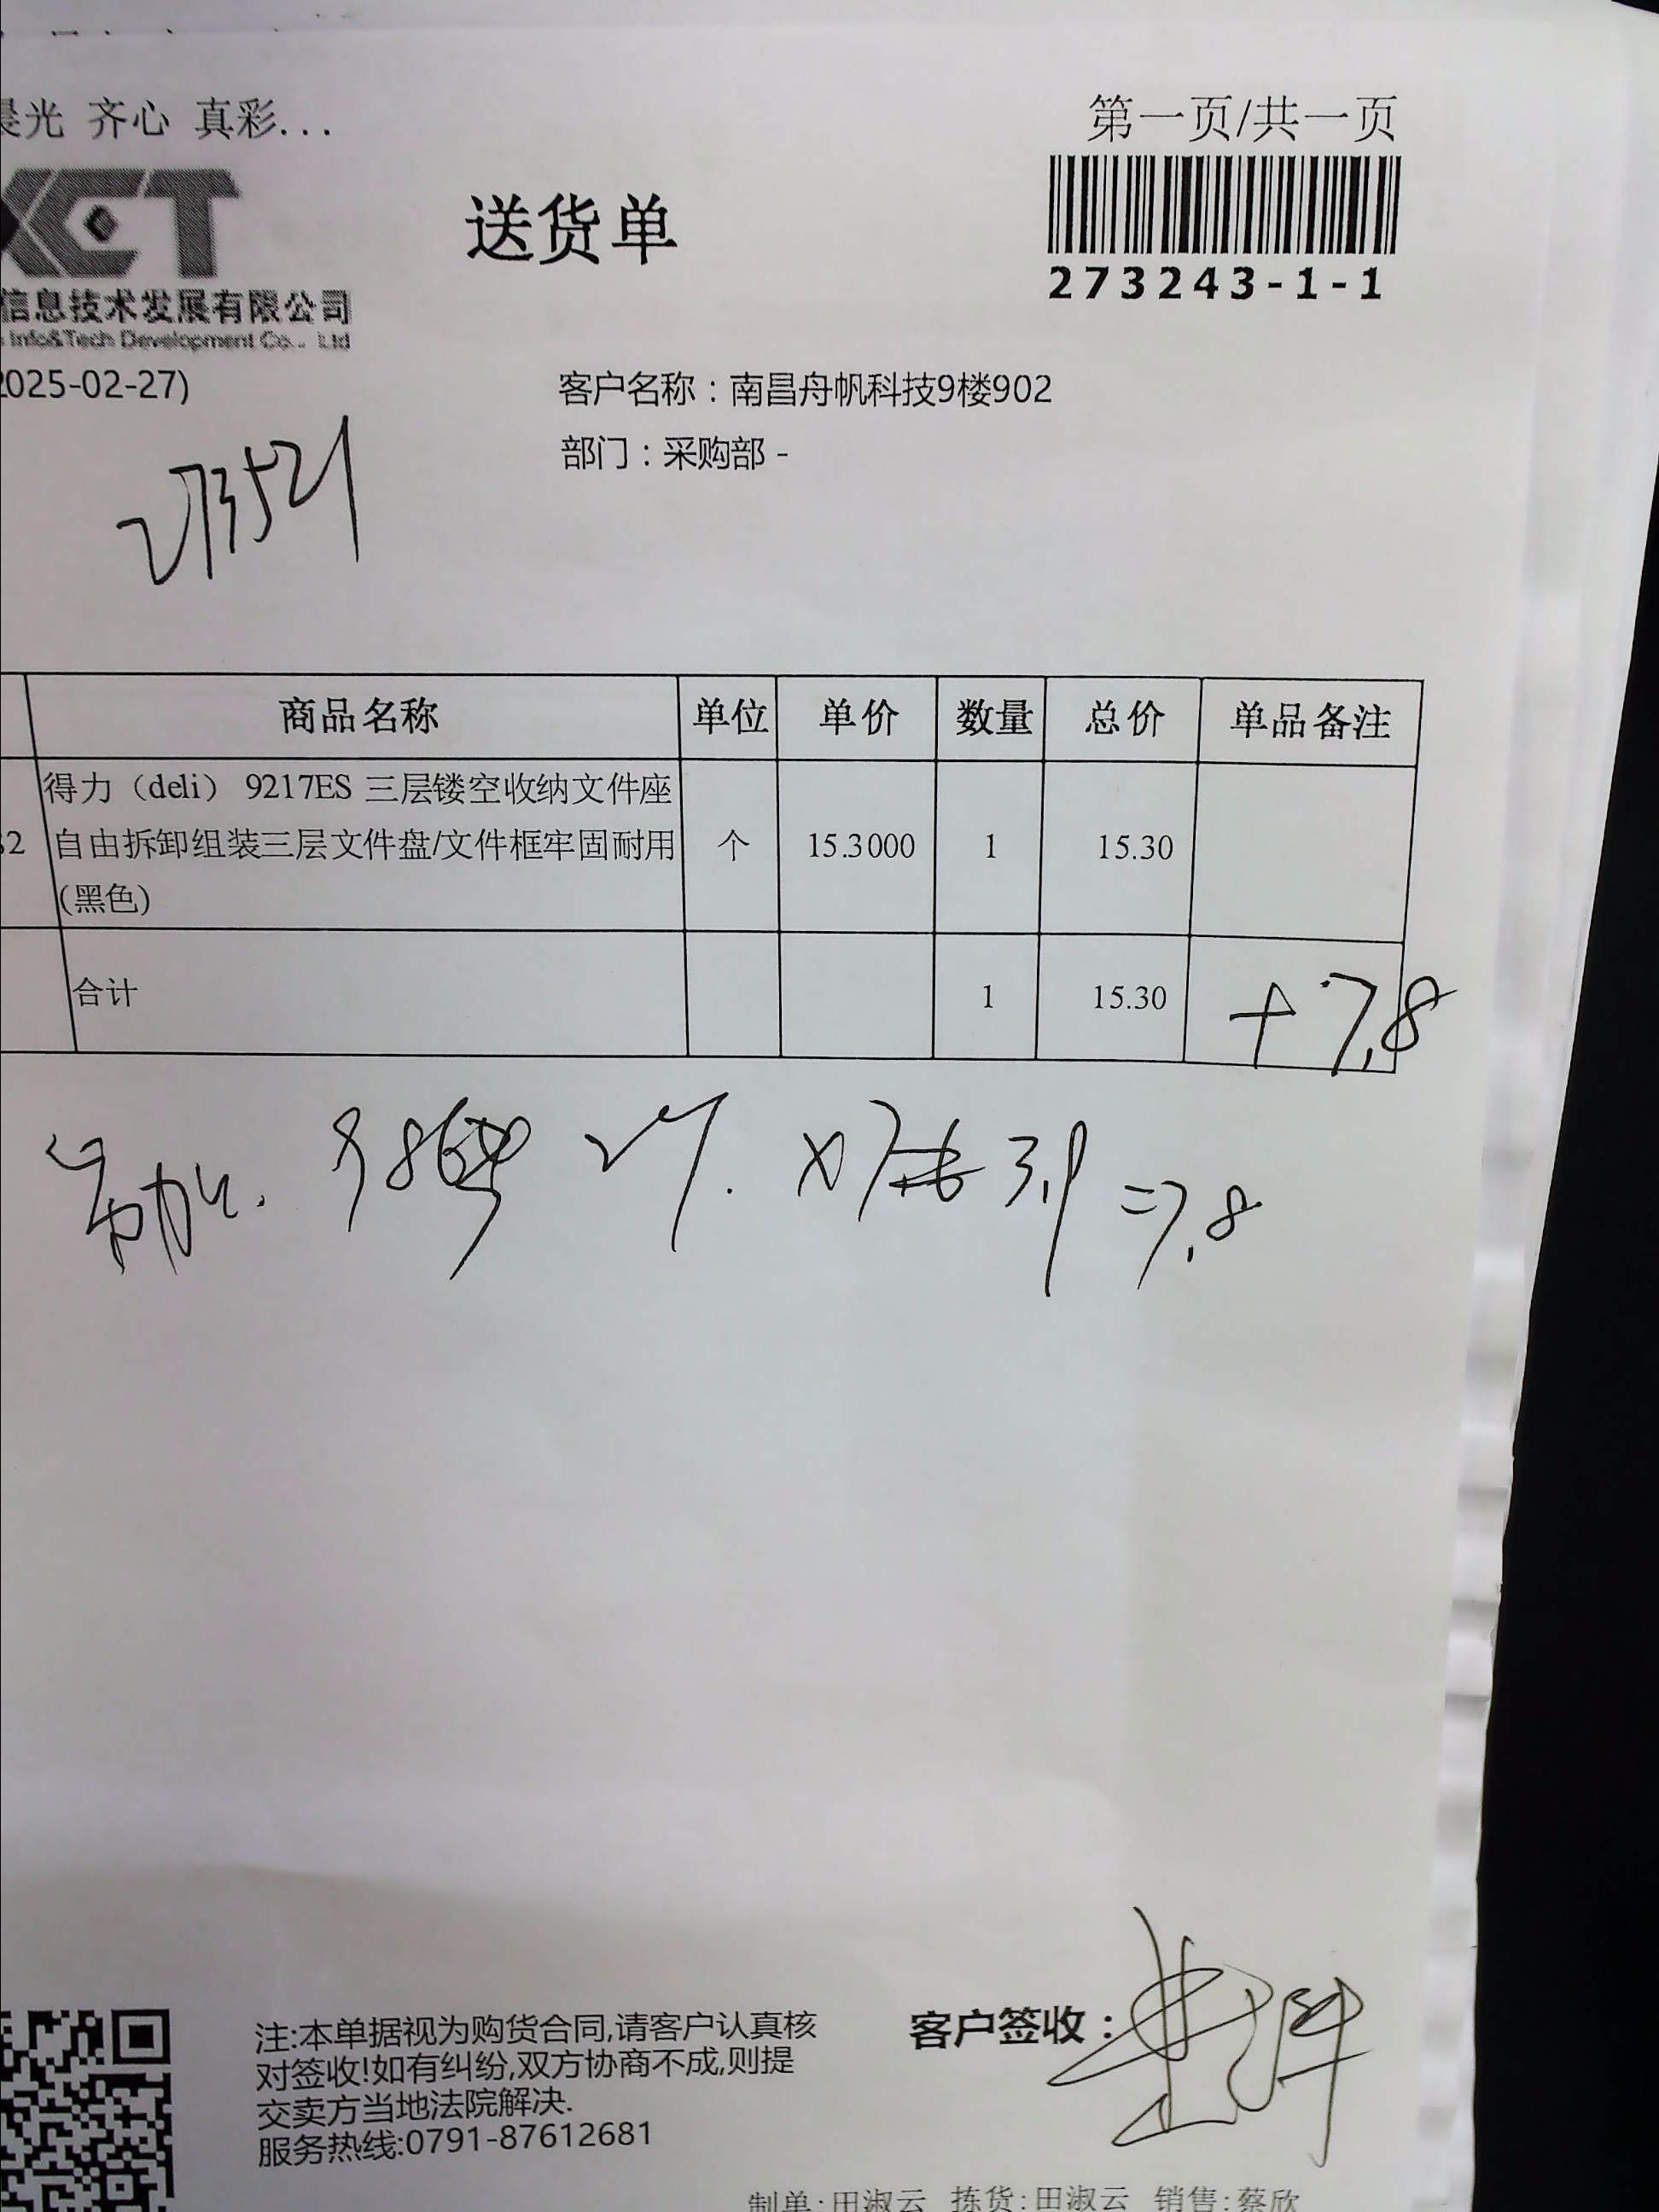 晨光 齐心 真彩...
第一页/共一页
送货单
273243-1-1
信息技术发展有限公司
Info&Tech Development Co., Ltd
2025-02-27)
客户名称：南昌舟帆科技9楼902
部门：采购部 -
273521
商品名称 单位 单价 数量 总价 单品备注
得力（deli） 9217ES 三层镂空收纳文件座
自由拆卸组装三层文件盘/文件框牢固耐用
(黑色)
个 15.3000 1 15.30
合计 1 15.30 +7.8
3.9 =7.8
注:本单据视为购货合同,请客户认真核
对签收!如有纠纷,双方协商不成,则提
交卖方当地法院解决.
服务热线:0791-87612681
客户签收：
制单:田淑云 拣货:田淑云 销售:蔡欣